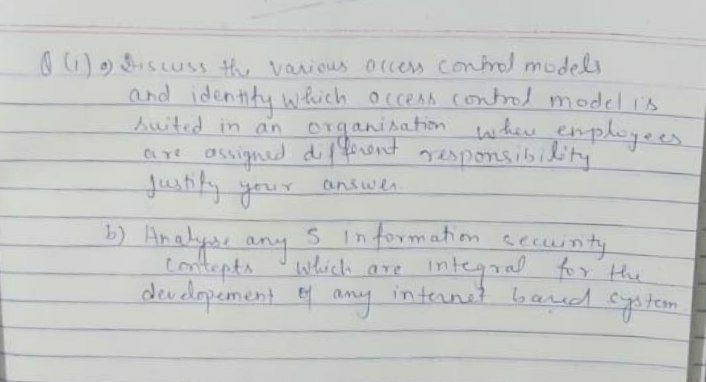 Q (1) a) Discuss the various access control models
and identify which access control model is
suited in an organisation when employees
are assigned different responsibility
justify your answer.
b) Analyse any 5 information security
contepts which are integral for the
developement of any internet based system